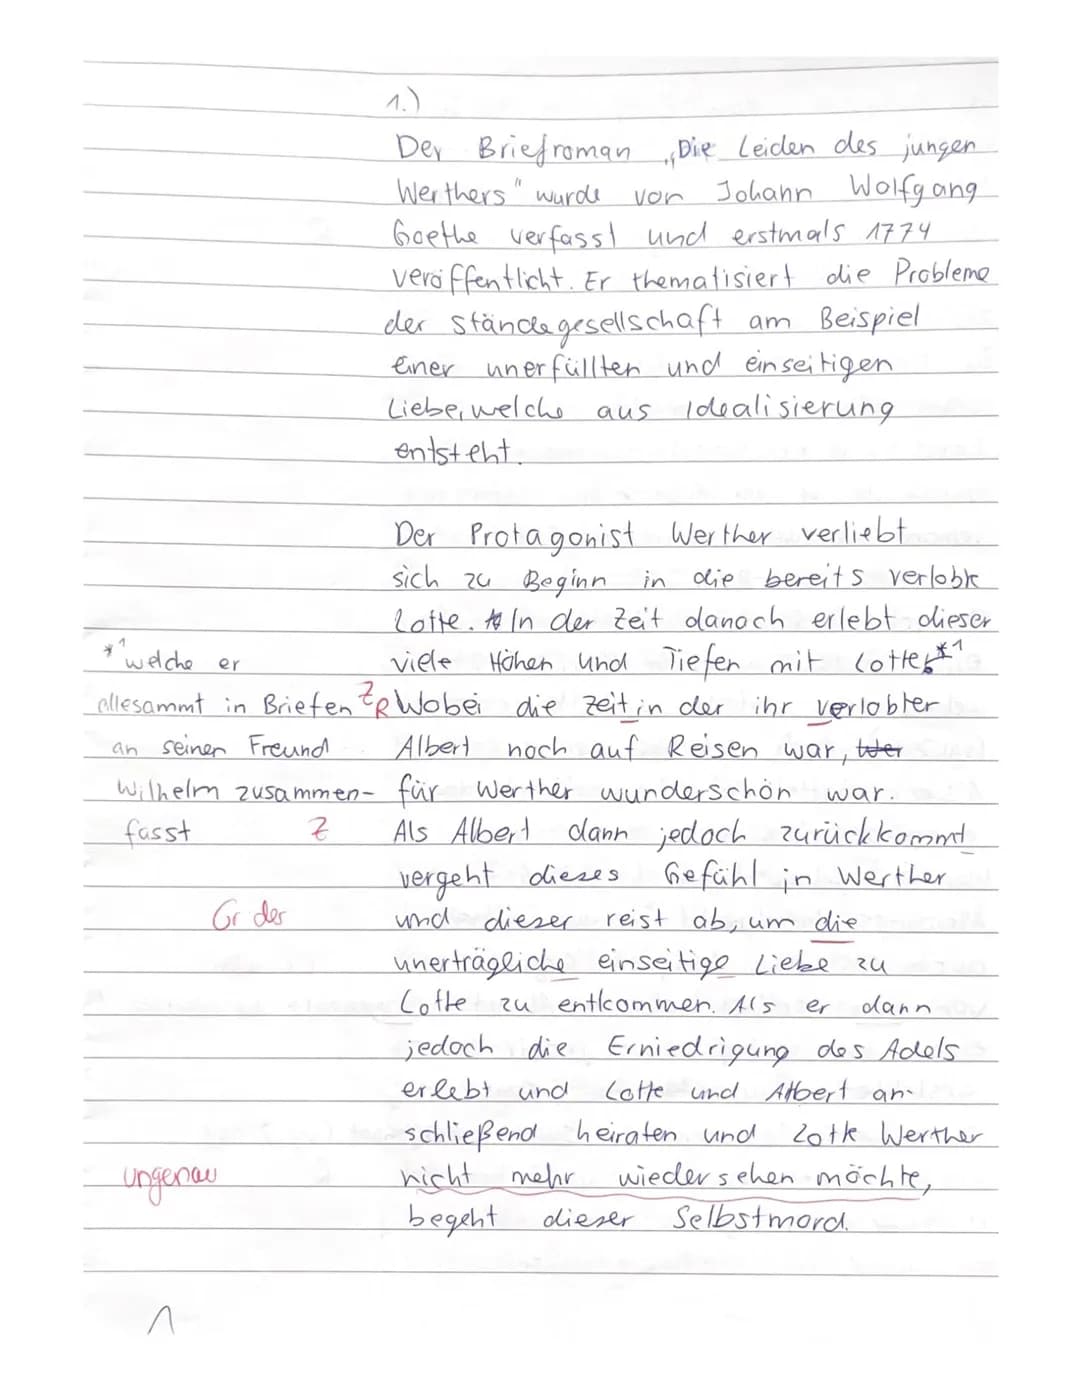 1.)
Der Briefroman „Die Leiden des jungen
Werthers" wurde von Johann Wolfgang
Goethe verfasst und erstmals 1774
veröffentlicht. Er thematisiert die Probleme
der Ständegesellschaft am Beispiel
einer unerfüllten und einseitigen
Liebe, welche aus Idealisierung
entsteht.
Der Protagonist Werther verliebt
sich zu Beginn in die bereits verlobte
Lotte. In der Zeit danach erlebt dieser
viele Höhen und Tiefen mit Lotte, *1
*1 welche er
allesammt in Briefen
an seinen Freund
Wilhelm zusammen-
fasst Z
Z R Wobei die Zeit in der ihr verlobter
Albert noch auf Reisen war,
für Werther wunderschön war.
Als Albert dann jedoch zurückkommt
vergeht dieses Gefühl in Werther
Gr der und dieser reist ab, um die
unerträgliche einseitige Liebe zu
Lotte zu entkommen. Als er dann
jedoch die Erniedrigung des Adels
erlebt und Lotte und Albert an-
schließend heiraten und Lotte Werther
ungenau nicht mehr wiedersehen möchte,
begeht dieser Selbstmord.
1